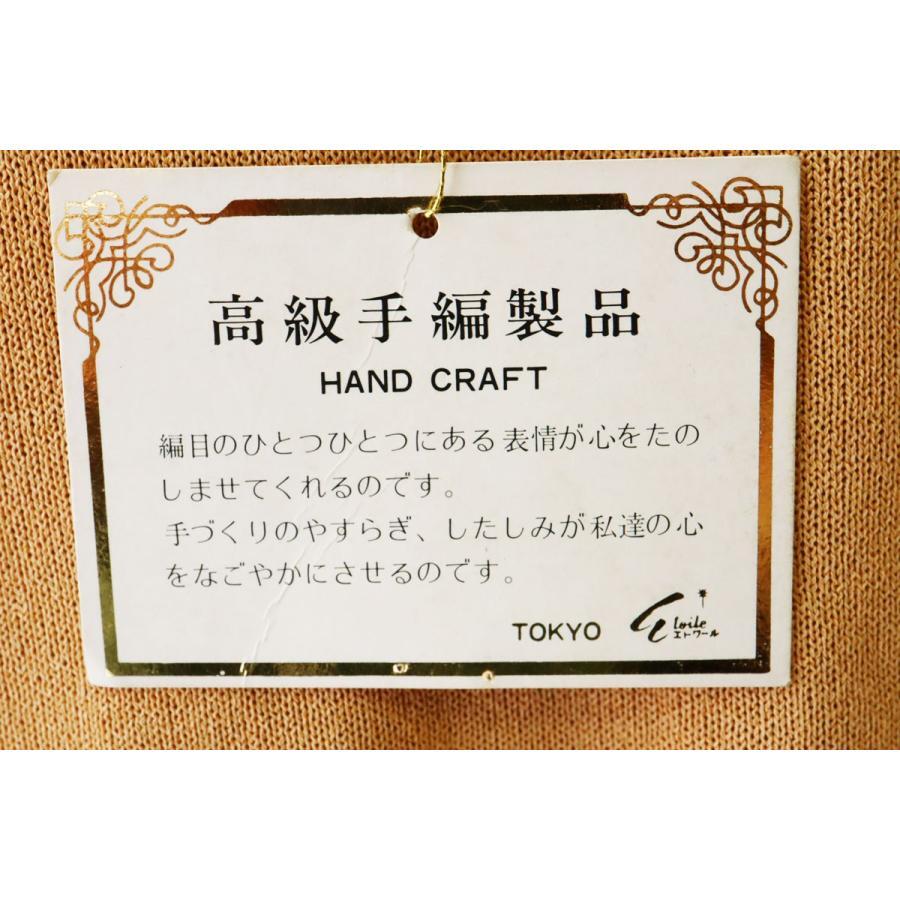 高級手編製品
HAND CRAFT
編目のひとつひとつにある表情が心をたの
しませてくれるのです。
手づくりのやすらぎ、したしみが私達の心
をなごやかにさせるのです。
TOKYO Etoile
エトワール